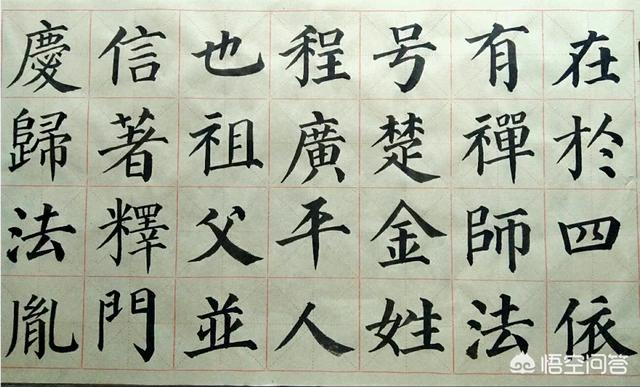 在於四依
有禪師法
号楚金姓
程廣平人
也祖父並
信著釋門
慶歸法胤
悟空问答